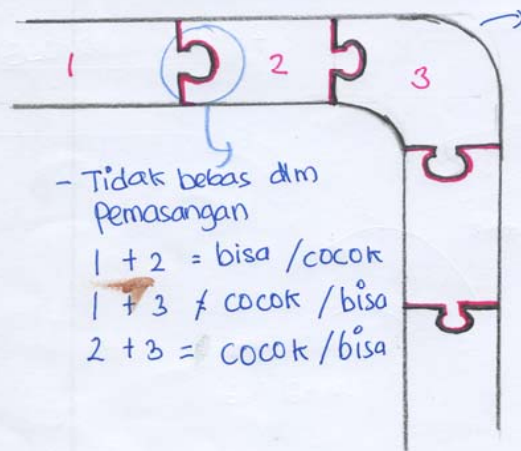 1
2
3
- Tidak bebas dlm
Pemasangan
1 + 2 = bisa / cocok
1 + 3 ≠ cocok / bisa
2 + 3 = cocok / bisa